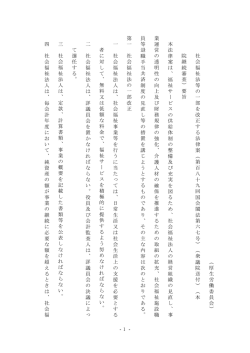 （厚生労働委員会）
社会福祉法等の一部を改正する法律案（第百八十九回国会閣法第六七号）（衆議院送付）（本
院継続審査）要旨
本法律案は、福祉サービスの供給体制の整備及び充実を図るため、社会福祉法人の経営組織の見直し、事
業運営の透明性の向上及び財務規律の強化、介護人材の確保を推進するための取組の拡充、社会福祉施設職
員等退職手当共済制度の見直し等の措置を講じようとするものであり、その主な内容は次のとおりである。
第一 社会福祉法の一部改正
一 社会福祉法人は、社会福祉事業等を行うに当たっては、日常生活又は社会生活上の支援を必要とする
者に対して、無料又は低額な料金で、福祉サービスを積極的に提供するよう努めなければならない。
二 社会福祉法人は、評議員会を置かなければならない。役員及び会計監査人は、評議員会の決議によっ
て選任する。
三 社会福祉法人は、定款、計算書類、事業の概要を記載した書類等を公表しなければならない。
四 社会福祉法人は、毎会計年度において、純資産の額が事業の継続に必要な額を超えるときは、社会福
- 1 -